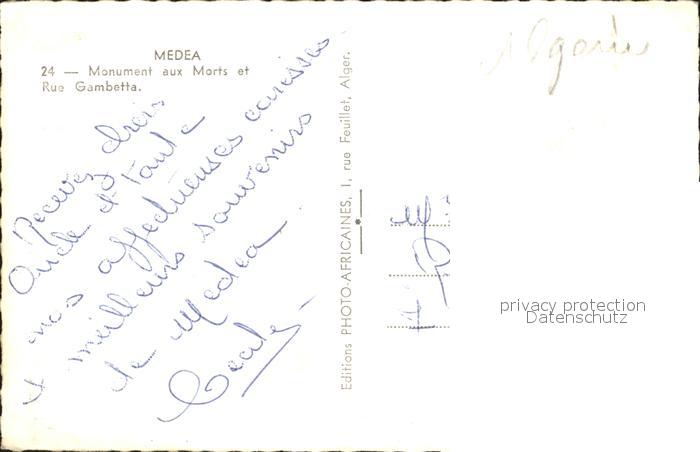 MEDEA
24 — Monument aux Morts et
Rue Gambetta.
Recevez chers
Oncle et Tante
nos affectueuses caresses
et meilleurs souvenirs
de Medea
Editions PHOTO-AFRICAINES, 1, rue Feuillet, Alger.
Algérie
M
privacy protection
Datenschutz